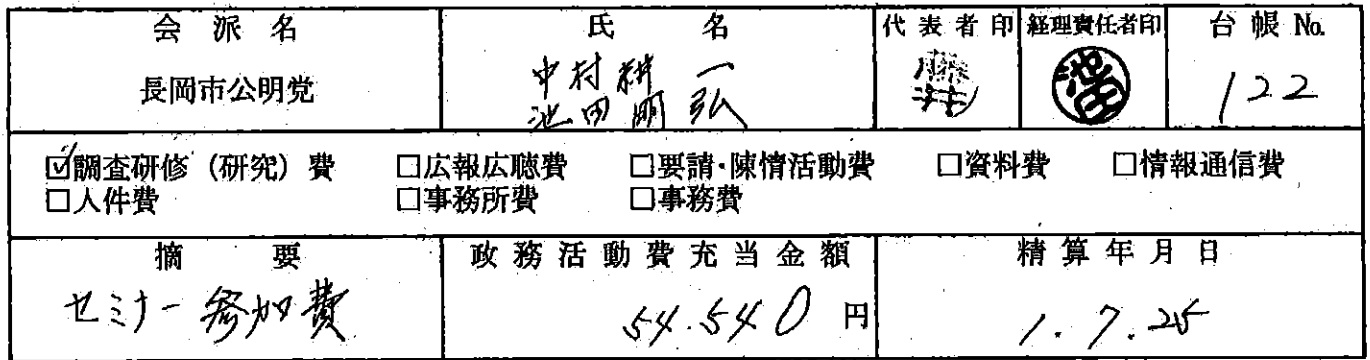 会派名 氏名 代表者印 経理責任者印 台帳 No.
長岡市公明党 中村耕一 池田 122
池田明弘
☑調査研修（研究）費 □広報広聴費 □要請・陳情活動費 □資料費 □情報通信費
□人件費 □事務所費 □事務費
摘要 政務活動費充当金額 精算年月日
セミナー参加費 54.540 円 1.7.25